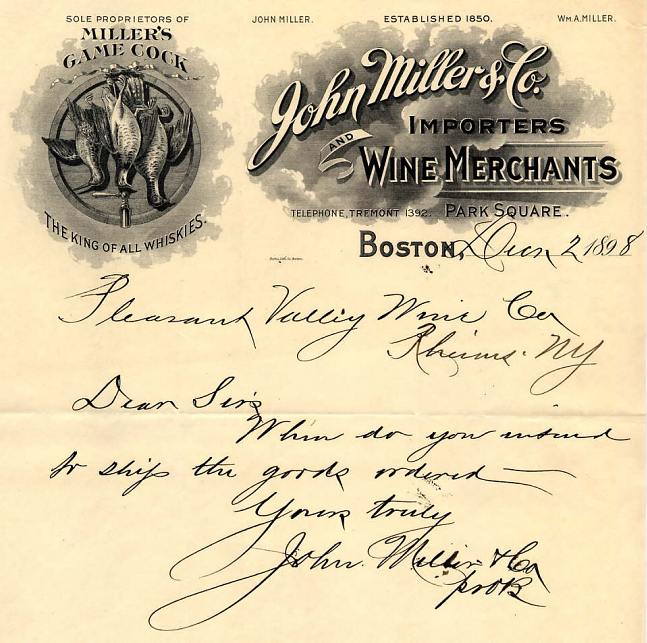 SOLE PROPRIETORS OF
MILLER'S
GAME COCK
THE KING OF ALL WHISKIES.
JOHN MILLER. ESTABLISHED 1850. WM. A. MILLER.
John Miller & Co.
IMPORTERS
AND
WINE MERCHANTS
TELEPHONE, TREMONT 1392. PARK SQUARE.
BOSTON, 2 1898
Pleasant Valley Wine Co
Rheims. NY
Dear Sirs
When do you intend
to ship the goods ordered —
Yours truly
John Miller & Co